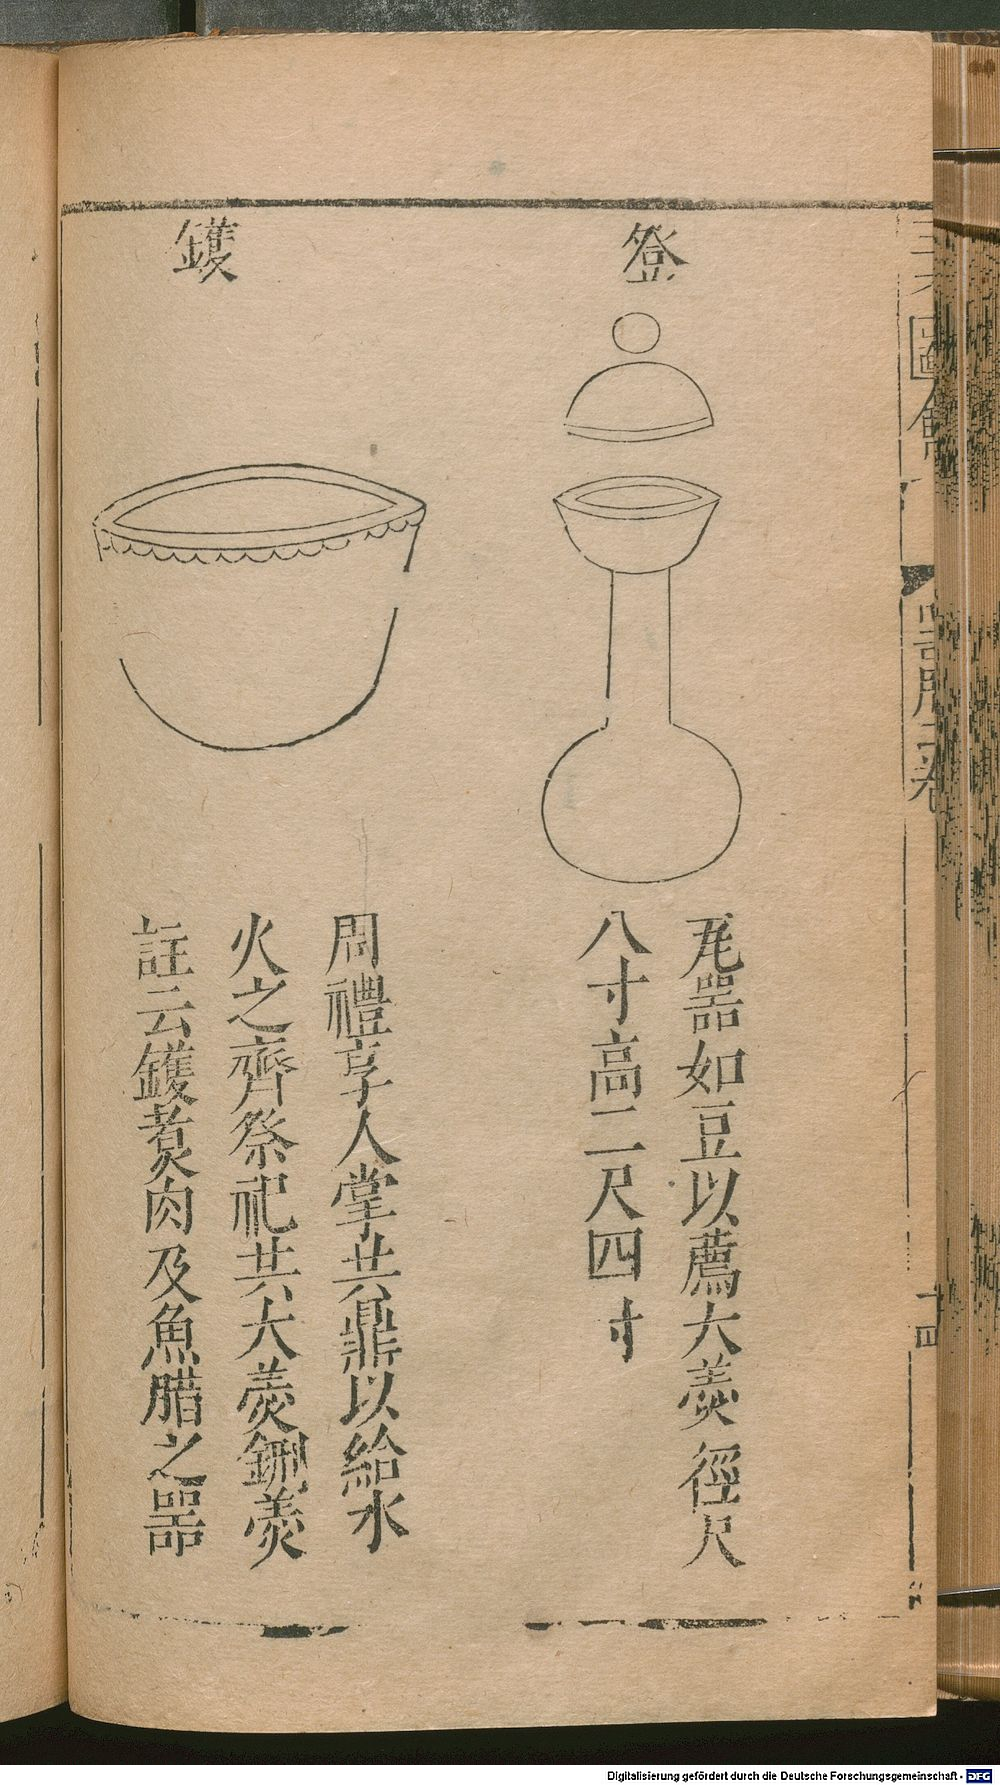 登
瓦噐如豆以薦大羮徑尺
八寸高二尺四寸
鑊
周禮亨人掌共鼎以給水
火之齊祭祀共大羮鉶羮
註云鑊煑肉及魚腊之噐
圖會
噐用二卷
十四
Digitalisierung gefördert durch die Deutsche Forschungsgemeinschaft - DFG